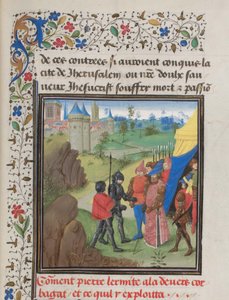 de ces contrees si auroient conquis la
cite de Jherusalem ou nre doulx sau
ueur Jhesucrist souffry mort & passio
Coment pierre lermite ala deuers cor
bagat et ce quil y exploitta